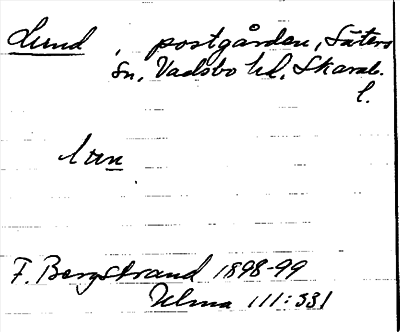 Lund, postgården, Säters
sn, Vadsbo hd, Skarab.
l.
lun
F. Bergstrand 1898-99
Ulma 111:331